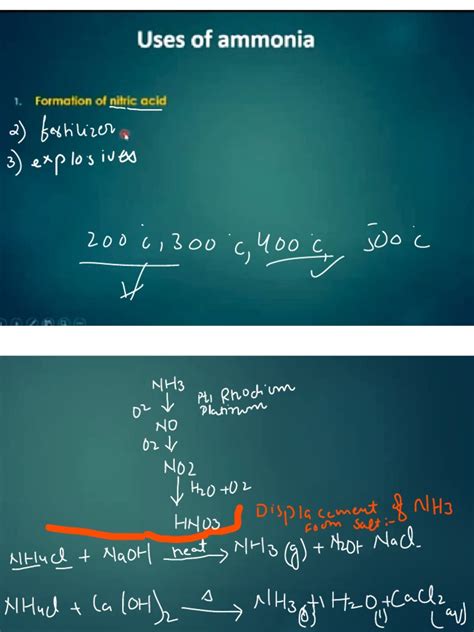 Uses of ammonia
1. Formation of nitric acid
2) fertilizer
3) explosives
200 °c, 300 °c, 400 °c, 500 °c
NH3
O2 ↓ Pt, Rhodium
Platinum
NO
O2 ↓
NO2
↓ H2O + O2
HNO3
Displacement of NH3
from salt:-
NH4Cl + NaOH heat → NH3(g) + H2O + NaCl
NH4Cl + Ca(OH)2 Δ → NH3(g) + H2O(l) + CaCl2(aq)